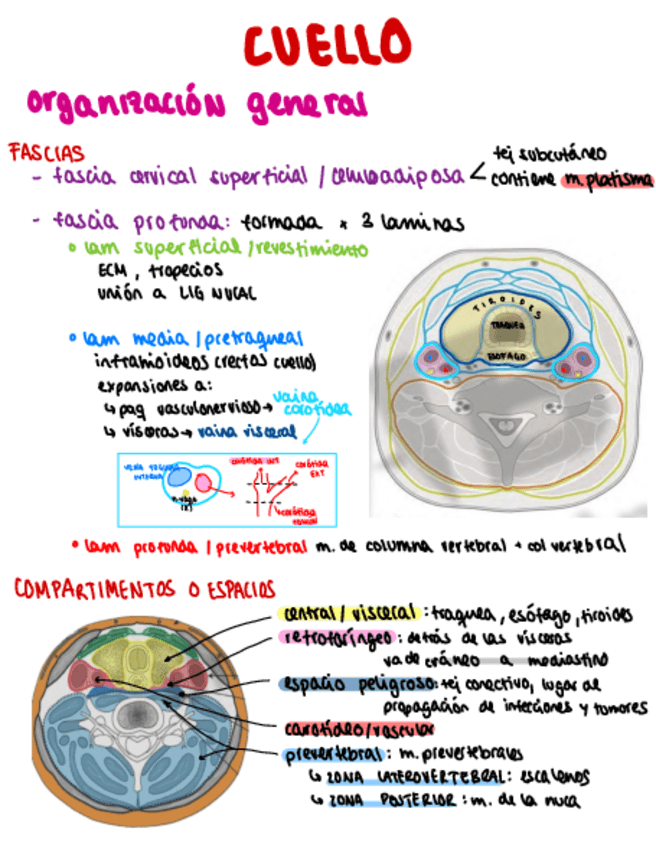 CUELLO
organización general
FASCIAS
- fascia cervical superficial / celuloadiposa < tej subcutáneo
contiene m.platisma
- fascia profunda: formada x 3 laminas
• lam superficial / revestimiento
ECM, trapecios
unión a LIG NUCAL
• lam media / pretraqueal
infrahioideos (rectos cuello)
expansiones a:
↳ paq vasculonervioso → vaina carotídea
↳ vísceras → vaina visceral
TIROIDES
TRAQUEA
ESOFAGO
VENA YUGULAR INTERNA
n. vago (X)
carótida INT
carótida EXT
carótida común
• lam profunda / prevertebral m. de columna vertebral + col vertebral
COMPARTIMENTOS O ESPACIOS
central / visceral: traquea, esófago, tiroides
retrofaríngeo: detrás de las vísceras
va de cráneo a mediastino
espacio peligroso: tej conectivo, lugar de
propagación de infecciones y tumores
carotídeo/vascular
prevertebral: m. prevertebrales
↳ ZONA LATEROVERTEBRAL: escalenos
↳ ZONA POSTERIOR: m. de la nuca